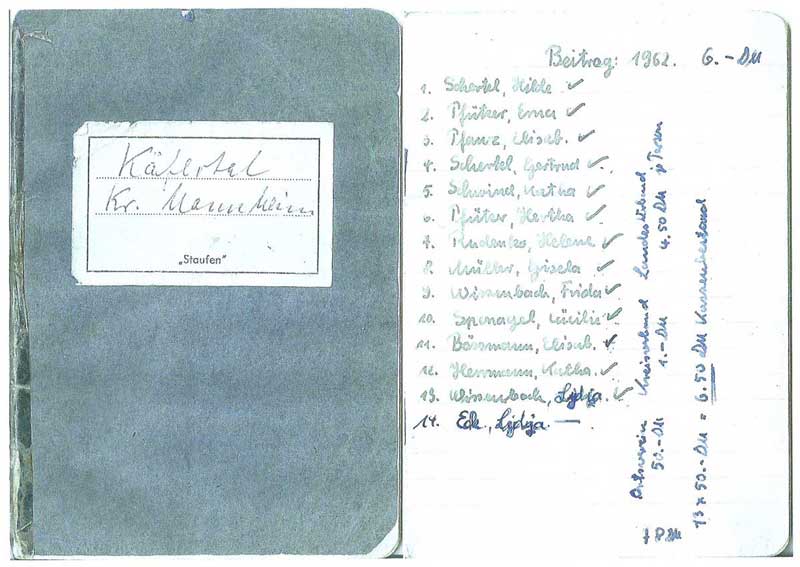 Käfertal
Kr. Mannheim
„Staufen"
Beitrag: 1962. 6.- DM
1. Schertel, Hilde ✓
2. Pfützer, Erna ✓
3. Pfanz, Elisab. ✓
4. Schertel, Gertrud ✓
5. Schwind, Katha ✓
6. Pfützer, Hertha ✓
7. Rudenko, Helene ✓
8. Müller, Gisela ✓
9. Wissenbach, Frida ✓
10. Spenagel, Cäcilie ✓
11. Bössmann, Elisab. ✓
12. Herrmann, Katha. ✓
13. Wissenbach, Lydja ✓
14. Eck, Lydja. —
Ortsverein Kreisverband Landesverband
50.- DM 1.- DM 4.50 DM p Person
13 x 50.- DM = 6.50 DM Kassenbestand